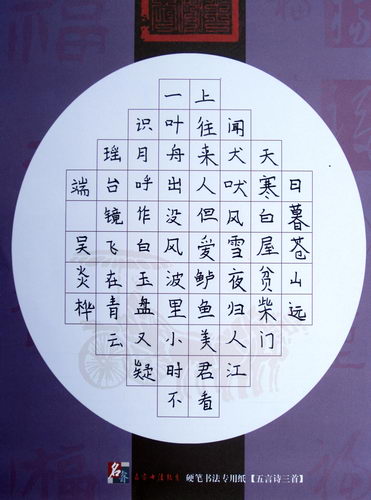 日暮苍山远
天寒白屋贫柴门
闻犬吠风雪夜归人江
上往来人但爱鲈鱼美君看
一叶舟出没风波里小时不
识月呼作白玉盘又疑
瑶台镜飞在青云
端 吴炎桦
硬笔书法专用纸【五言诗三首】